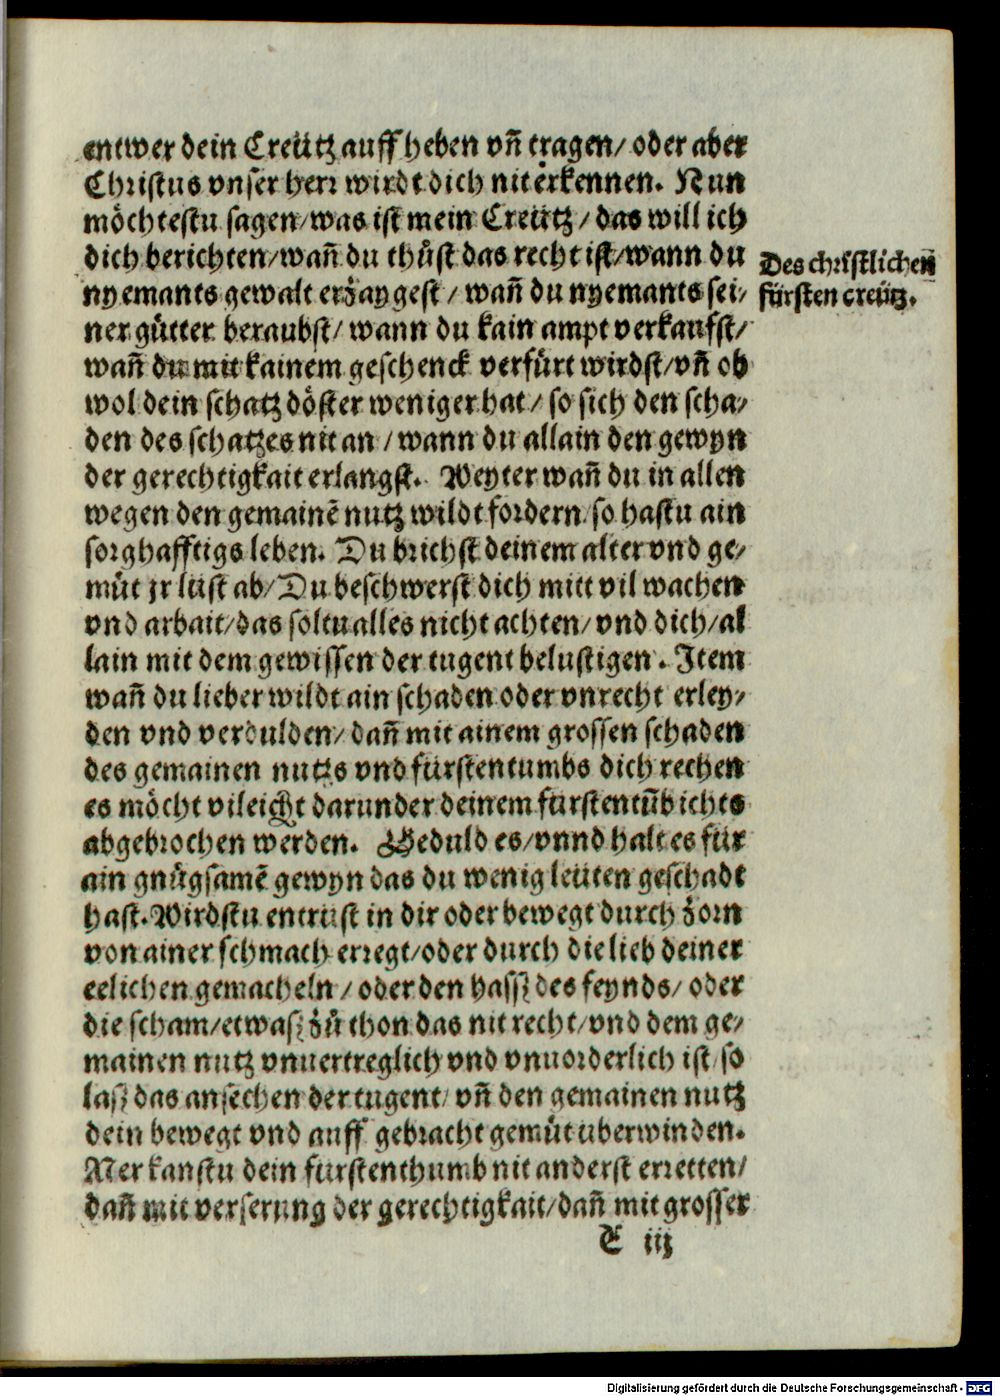 entwer dein Creütz auff heben vñ tragen/ oder aber
Christus vnser herr wirdt dich nit erkennen. Nun
möchtestu sagen/ was ist mein Creütz/ das will ich
dich berichten/ wañ du thůst das recht ist/ wann du
nyemants gewalt erzaygest/ wañ du nyemants sei/
ner gütter beraubst/ wann du kain ampt verkaufst/
wañ du mit kainem geschenck verfürt wirdst/ vñ ob
wol dein schatz döster weniger hat/ so sich den scha/
den des schatzes nit an/ wann du allain den gewyn
der gerechtigkait erlangst. Weyter wañ du in allen
wegen den gemainē nutz wildt fordern/ so hastu ain
sorghafftigs leben. Du brichst deinem alter vnd ge/
müt jr lüst ab/ Du beschwerst dich mitt vil wachen
vnd arbait/ das soltu alles nicht achten/ vnd dich/ al
lain mit dem gewissen der tugent belustigen. Item
wañ du lieber wildt ain schaden oder vnrecht erley/
den vnd verdulden/ dañ mit ainem grossen schaden
des gemainen nutzs vnd fürstentumbs dich rechen
es möcht vileicht darunder deinem fürstentũb ichts
abgebrochen werden. Geduld es/ vnnd halt es für
ain gnůgsamē gewyn das du wenig leüten geschadt
hast. Wirdstu entrüst in dir oder bewegt durch zorn
von ainer schmach erregt/ oder durch die lieb deiner
eelichen gemacheln/ oder den hassz des feynds/ oder
die scham/ etwasz zů thon das nit recht/ vnd dem ge/
mainen nutz vnuertreglich vnd vnuorderlich ist/ so
lasz das ansechen der tugent/ vñ den gemainen nutz
dein bewegt vnd auff gebracht gemüt uberwinden.
Mer kanstu dein fürstenthumb nit anderst erretten/
dañ mit verserung der gerechtigkait/ dañ mit grosser
E iij
Des christlichenn
fürsten creütz.
Digitalisierung gefördert durch die Deutsche Forschungsgemeinschaft - DFG